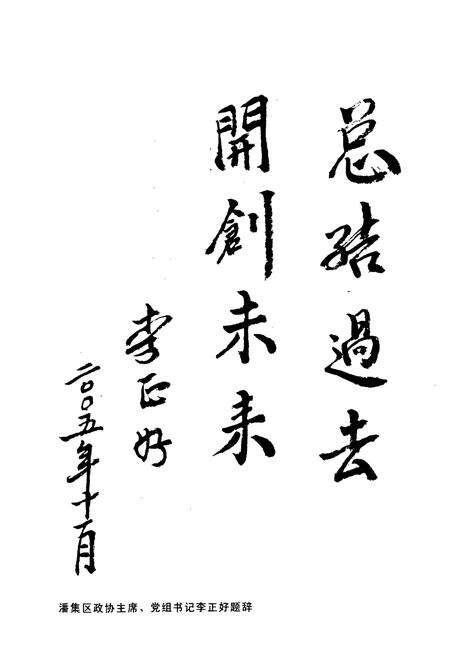 总结過去
開創未来
李正好
二〇〇五年十月
潘集区政协主席、党组书记李正好题辞